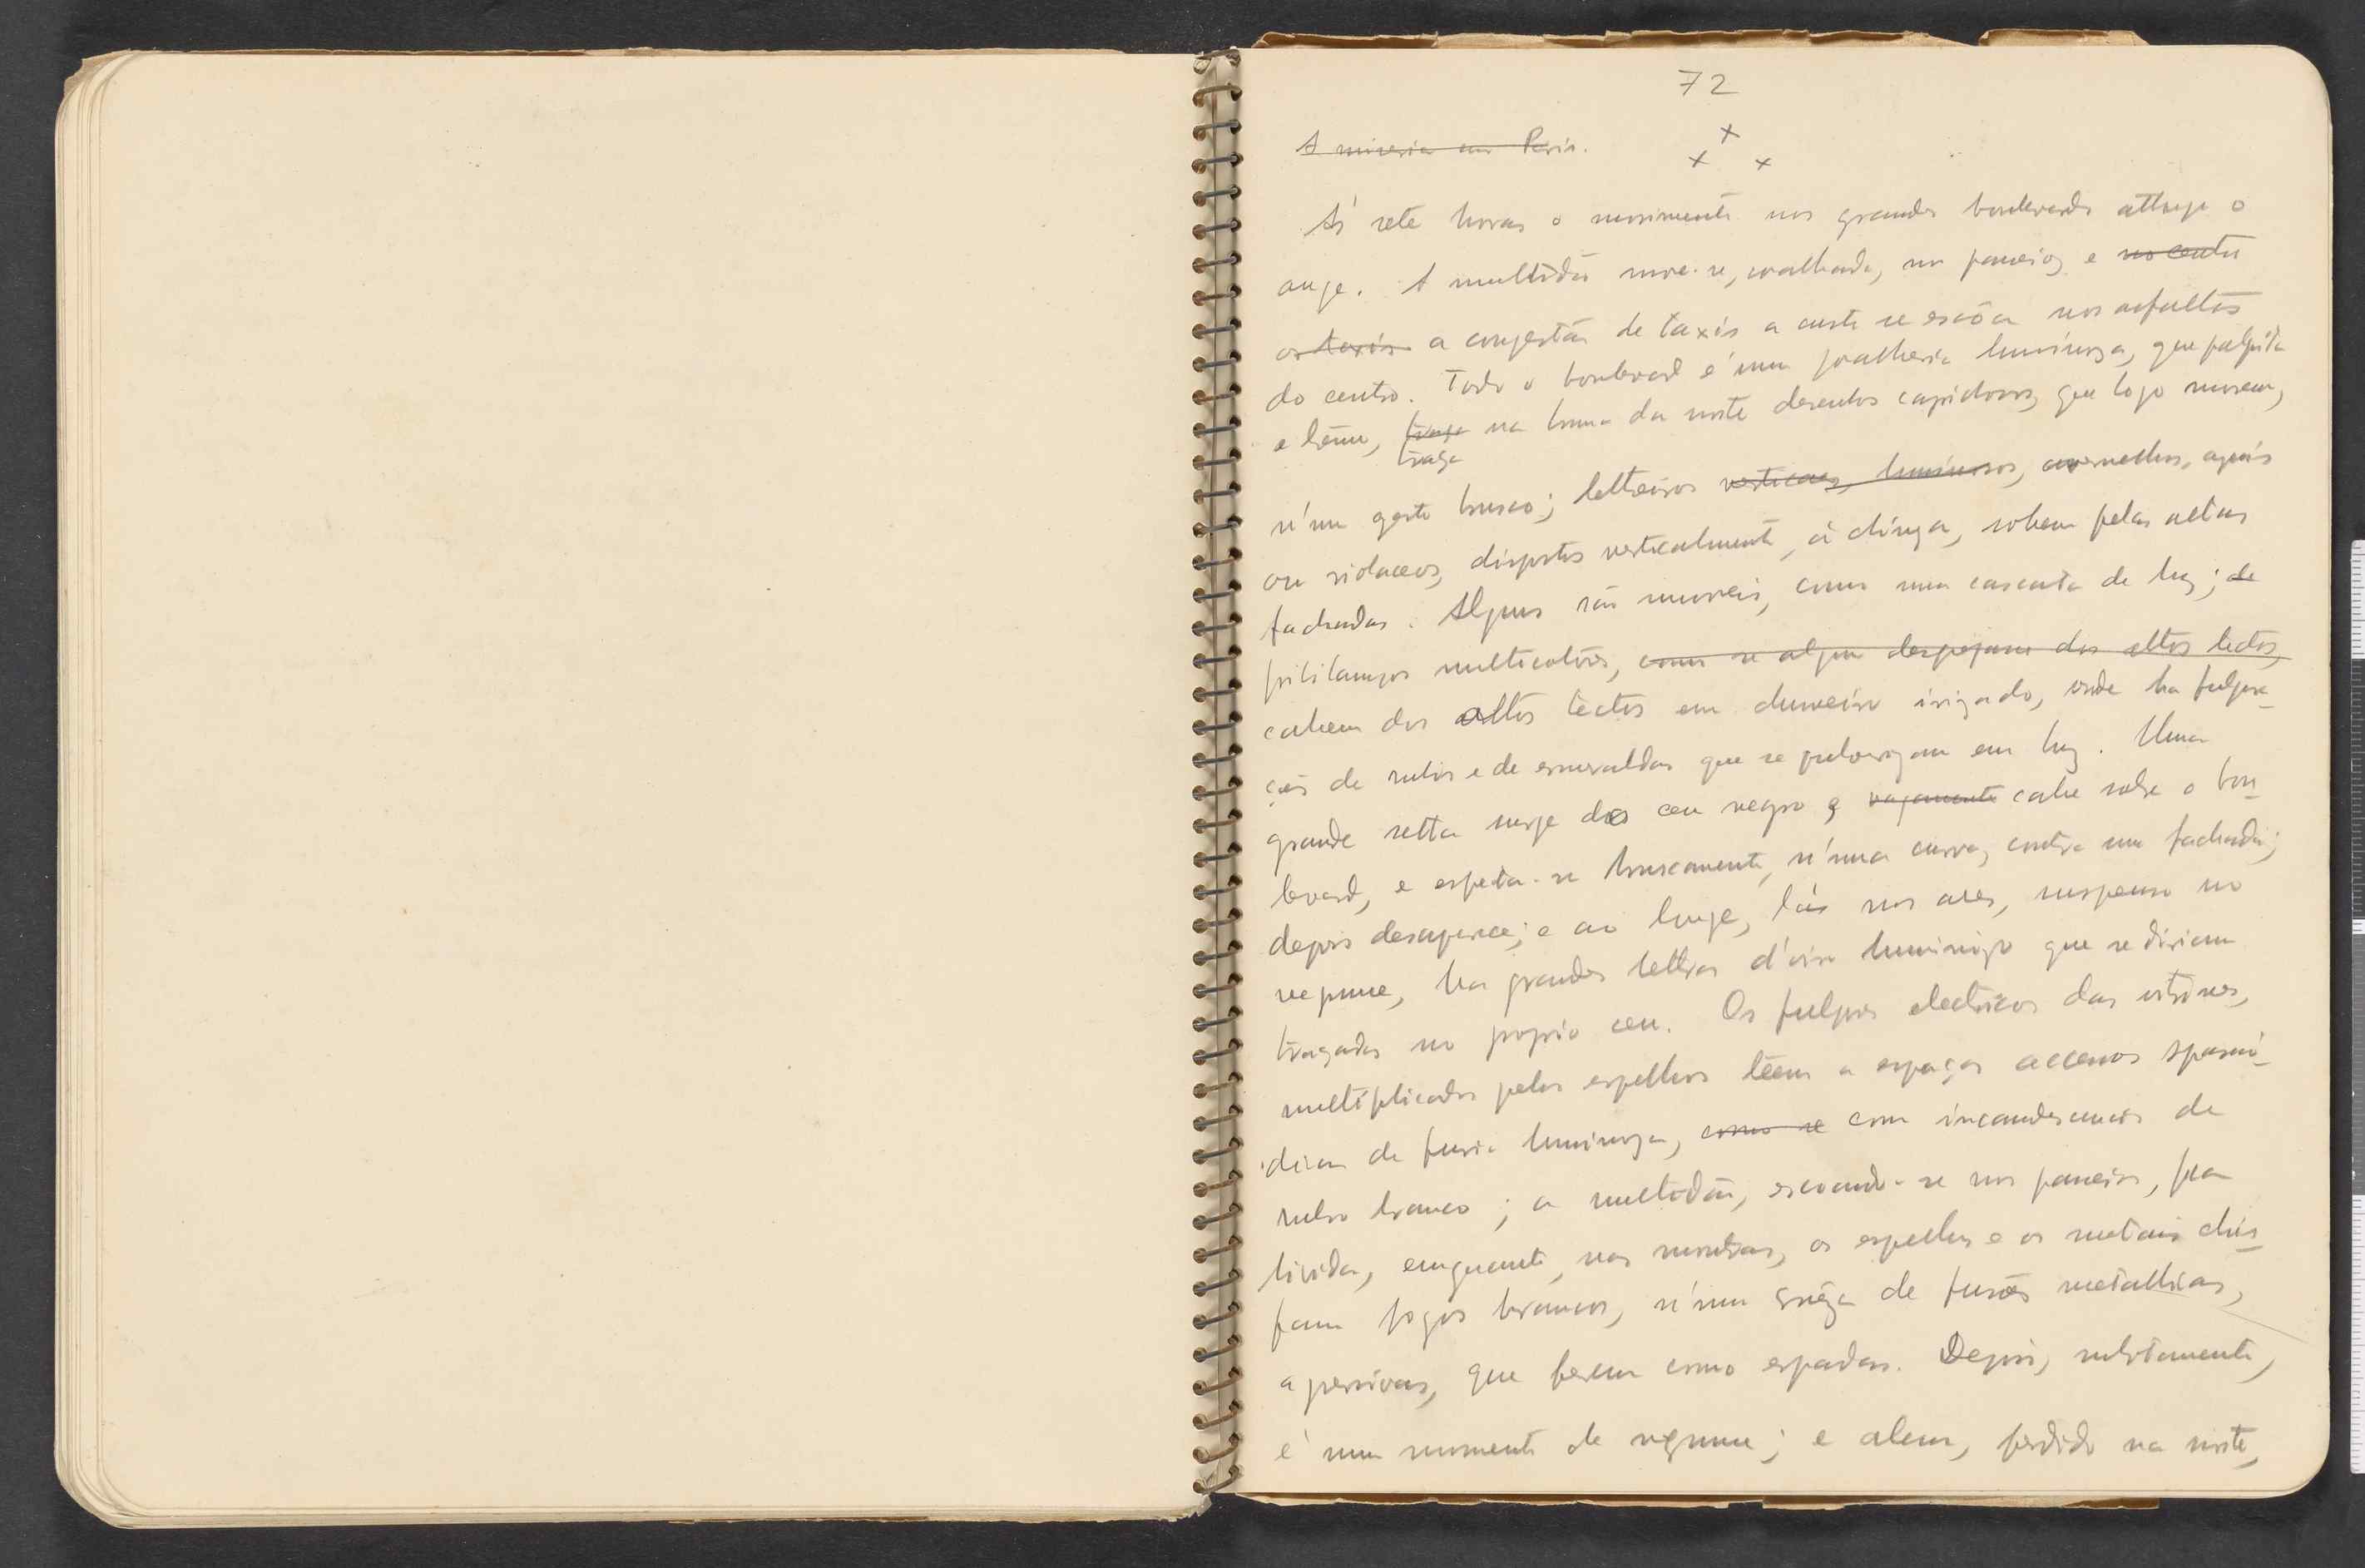 72
A miseria em Paris.
x
x x
Ás sete horas o movimento nos grandes boulevards attinge o
auge. A multidão move-se, coalhada, nos passeios, e no centro
os taxis a congestão de taxis a custo se escôa nos asfaltos
do centro. Todo o boulevard é uma joalheria luminosa, que palpita
e treme, traça na bruma da noite desenhos caprichosos, que logo morrem,
traça
n'um gesto brusco; lettreiros verticaes, luminosos, avermelhos, azues
ou violaceos, dispostos verticalmente, á chineza, sobem pelas altas
fachadas. Alguns são moveis, como uma cascata de luz; de
pirilampos multicolores, como se alguem despejasse dos altos tectos,
cahem dos altos tectos em chuveiro irizado, onde ha fulgura-
ções de rubis e de esmeraldas que se pulverizam em luz. Uma
grande setta surge do ceu negro e vagamente cahe sobre o bou-
levard, e espeta-se bruscamente, n'uma curva, contra uma fachada;
depois desaparece; e ao longe, lá nos ares, suspenso no
negrume, ha grandes lettras d'oiro luminoso que se diriam
traçadas no proprio ceu. Os fulgores electricos das vitrines,
multiplicados pelos espelhos têem a espaços accenos spasmo-
dicos de furia luminosa, como se com incandescencias de
rubro branco; a multidão, escoando-se nos passeios, fica
livida, emquanto, nas montras, os espelhos e os metais chis-
pam fogos brancos, n'uma de fusões metallicas,
agressivas, que ferem como espadas. Depois, subitamente,
é um momento de negrume; e alem, perdido na noite,